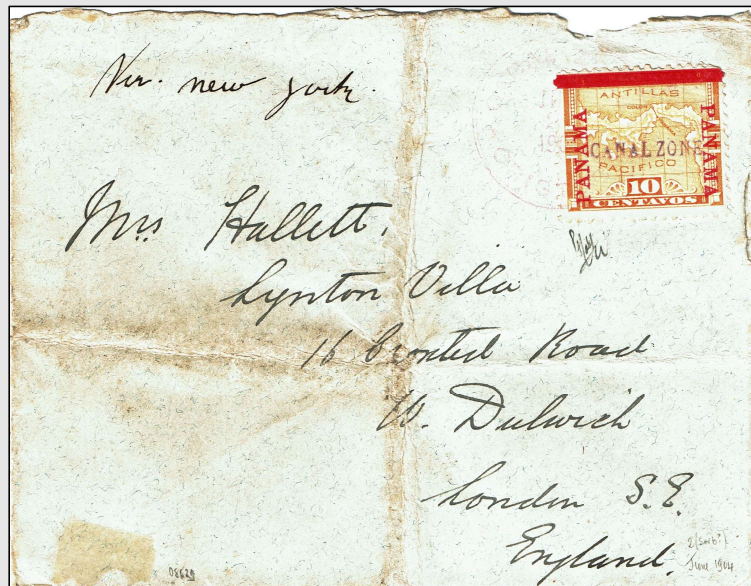 Via. new york.
ANTILLAS
COLON
PANAMA
PANAMA
CANAL ZONE
PACIFICO
10
CENTAVOS
Mrs Hallett.
Lynton Villa
16 Croxted Road
W. Dulwich
London S.E.
England
08629
June 1904